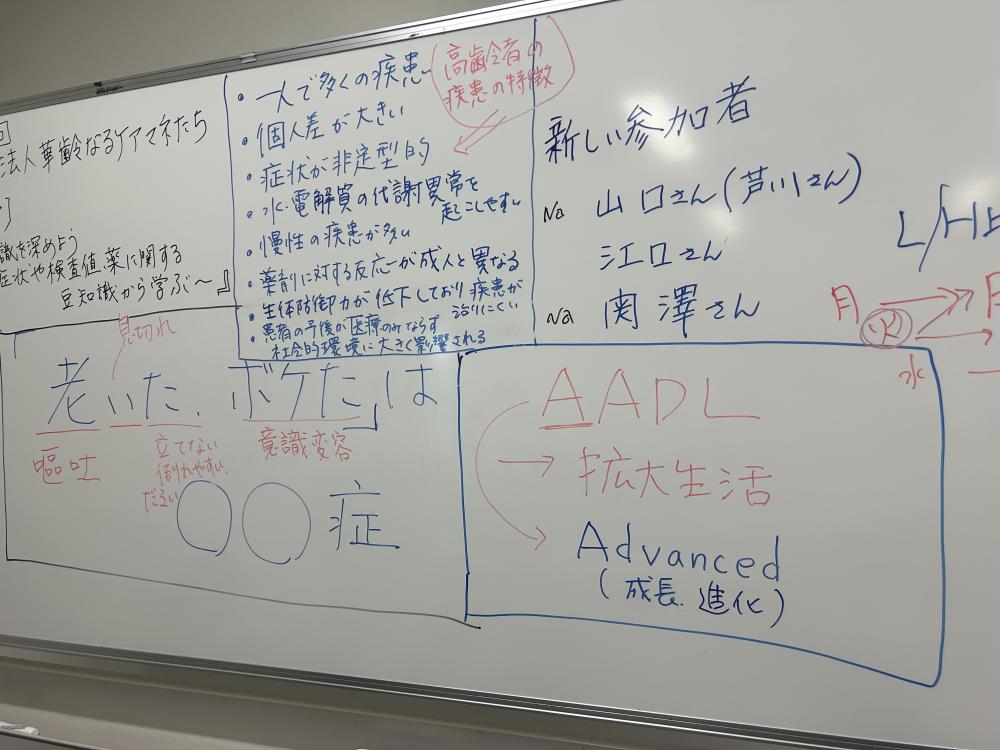 回
法人華齢なるケアマネたち
識を深めよう
症状や検査値、薬に関する
豆知識から学ぶ～』
高齢者の
疾患の特徴
・一人で多くの疾患
・個人差が大きい
・症状が非定型的
・水・電解質の代謝異常を
起こしやすい
・慢性の疾患が多い
・薬剤に対する反応が成人と異なる
・生体防御力が低下しており疾患が
治りにくい
・患者の予後が医療のみならず
社会的環境に大きく影響される
新しい参加者
Na 山口さん(芦川さん)
江口さん
Na 関澤さん
L/H
月
火
水
息切れ
「老いた、ボケた」は
嘔吐
立てない
倒れやすい、
だるい
意識変容
○○症
AADL
→拡大生活
Advanced
(成長、進化)